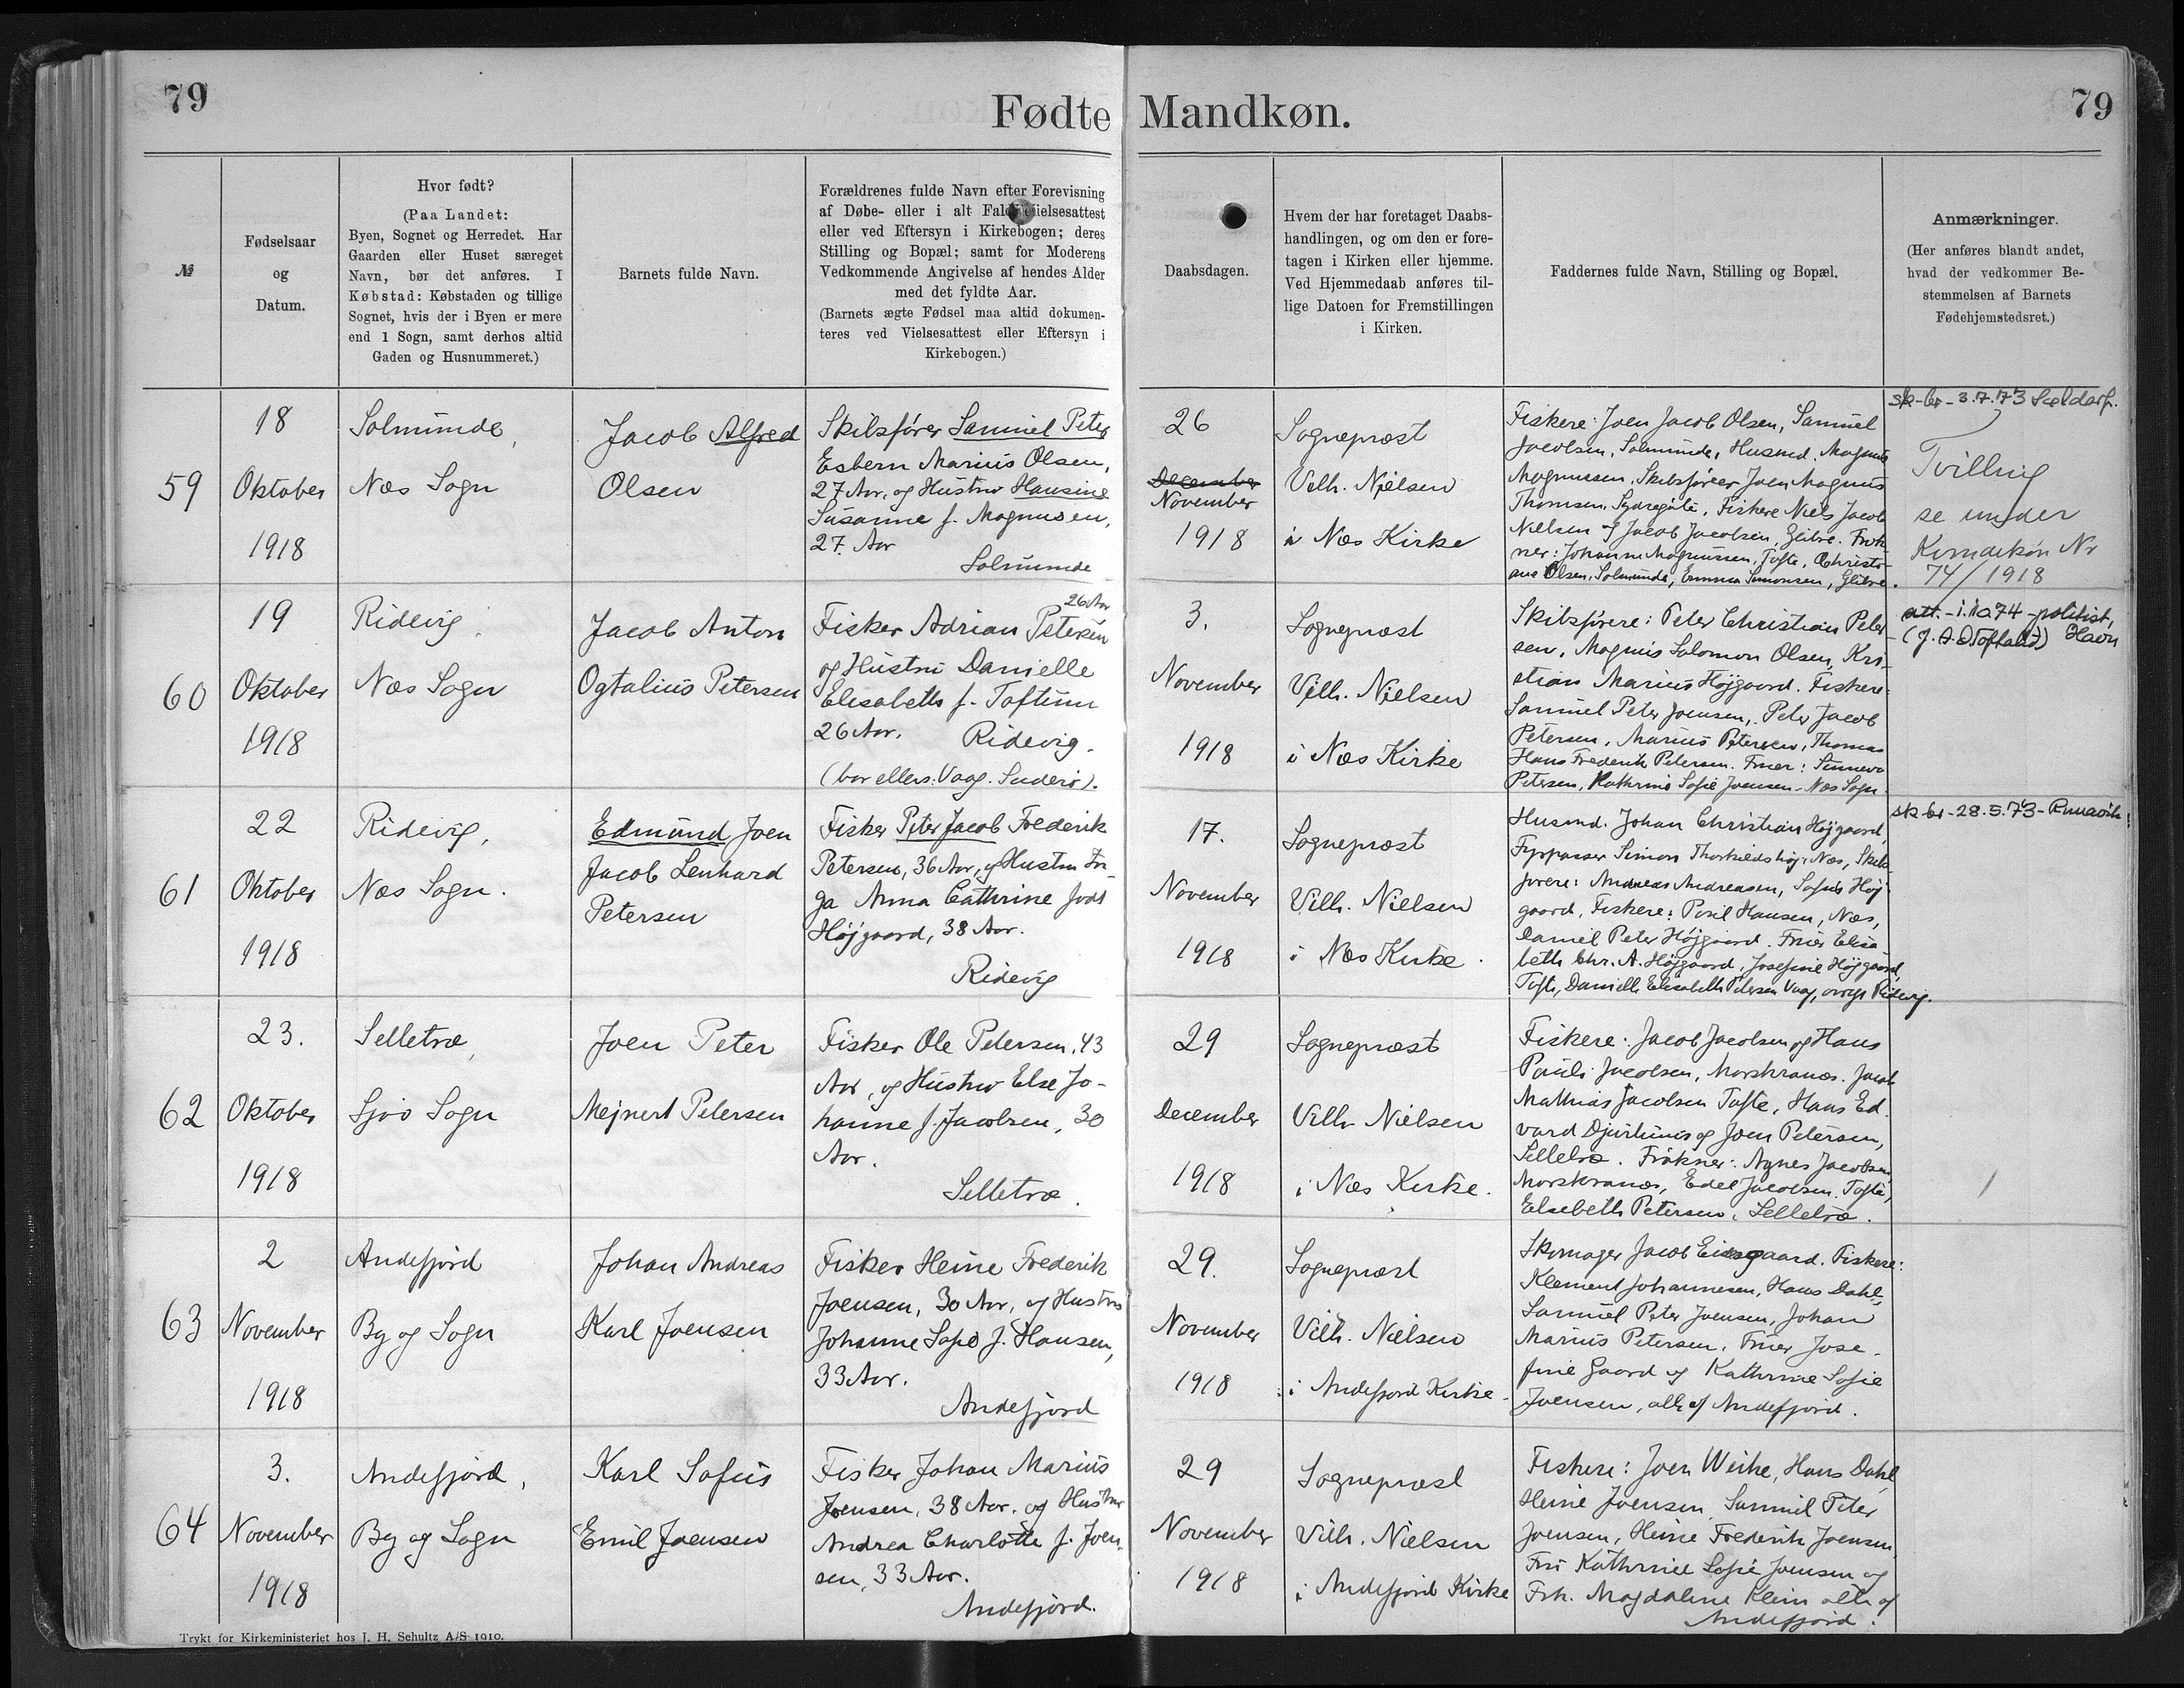 79
Fødte Mandkøn.
79
№
Fødselsaar
og
Datum.
Hvor født?
(Paa Landet:
Byen, Sognet og Herredet. Har
Gaarden eller Huset særeget
Navn, bør det anføres. I
Købstad: Købstaden og tillige
Sognet, hvis der i Byen er mere
end 1 Sogn, samt derhos altid
Gaden og Husnummeret.)
Barnets fulde Navn.
Forældrenes fulde Navn efter Forevisning
af Døbe- eller i alt Fald Vielsesattest
eller ved Eftersyn i Kirkebogen; deres
Stilling og Bopæl; samt for Moderens
Vedkommende Angivelse af hendes Alder
med det fyldte Aar.
(Barnets ægte Fødsel maa altid dokumen-
teres ved Vielsesattest eller Eftersyn i
Kirkebogen.)
Daabsdagen.
Hvem der har foretaget Daabs-
handlingen, og om den er fore-
tagen i Kirken eller hjemme.
Ved Hjemmedaab anføres til-
lige Datoen for Fremstillingen
i Kirken.
Faddernes fulde Navn, Stilling og Bopæl.
Anmærkninger.
(Her anføres blandt andet,
hvad der vedkommer Be-
stemmelsen af Barnets
Fødehjemstedsret.)
59
18
Oktober
1918
Solmunde,
Næs Sogn
Jacob Alfred
Olsen
Skibsfører Samuel Peter
Esbern Marius Olsen,
27 Aar, og Hustru Hansine
Susanne f. Magnusen,
27 Aar
Solmunde
26
December
November
1918
Sognepræst
Vilh. Nielsen
i Næs Kirke
Fiskere: Joen Jacob Olsen, Samuel
Jacobsen, Solmunde, Husmd. Magnus
Magnussen, Skibsfører Joen Magnus
Thomsen, Sydregöte, Fiskere Niels Jacob
Nielsen og Jacob Jacobsen, Glibre. Frøk-
ner: Johanne Magnussen, Tofte, Christi-
ane Olsen, Solmunde, Emma Simonsen, Glibre.
sk-br-3.7.73
Tvilling
se under
Kvindekøn Nr
74/1918
60
19
Oktober
1918
Ridevig,
Næs Sogn
Jacob Anton
Ogtalius Petersen
26 Aar
Fisker Adrian Petersen
og Hustru Danielle
Elisabeth f. Toftum
26 Aar. Ridevig.
(bor ellers: Vaag. Suderö).
3.
November
1918
Sognepræst
Vilh. Nielsen
i Næs Kirke
Skibsførere: Peter Christian Peter-
sen, Magnus Solomon Olsen, Kri-
stian Marius Højgaard. Fiskere:
Samuel Peter Joensen, Peter Jacob
Petersen, Marius Petersen, Thomas
Hans Frederik Petersen. Fruer: Sunneva
Petersen, Kathrine Sofie Joensen - Næs Sogn.
att. - 74 - politist,
Havn
61
22
Oktober
1918
Ridevig,
Næs Sogn.
Edmund Joen
Jacob Lenhard
Petersen
Fisker Peter Jacob Frederik
Petersen, 36 Aar, og Hustru In-
ga Anna Cathrine født
Højgaard, 38 Aar.
Ridevig
17.
November
1918
Sognepræst
Vilh. Nielsen
i Næs Kirke.
Husmd. Johan Christian Højgaard,
Fyrpasser Simon Thorkildshøj, Næs, Skibs-
førere: Andreas Andreasen, Sofus Høj-
gaard, Fiskere: Poul Hansen, Næs,
Daniel Peter Højgaard. Fruer Elisa-
beth Chr. A. Højgaard, Josefine Højgaard,
Tofte, Danielle Elisabeth Petersen Vaag, øvrige Ridevig.
sk-br-28.5.73-Runavík
62
23.
Oktober
1918
Selletræ,
Sjov Sogn
Joen Peter
Mejnert Petersen
Fisker Ole Petersen, 43
Aar, og Hustru Else Jo-
hanne f. Jacobsen, 30
Aar.
Selletræ.
29
December
1918
Sognepræst
Vilh Nielsen
i Næs Kirke.
Fiskere: Jacob Jacobsen og Hans
Pauli Jacobsen, Morskranæs. Jacob
Mathias Jacobsen Tofte, Hans Ed-
vard Djurhuus og Joen Petersen,
Selletræ. Frøkner: Agnes Jacobsen
Morskranæs, Edel Jacobsen, Tofte,
Elsebeth Petersen, Selletræ.
63
2
November
1918
Andefjord
By og Sogn
Johan Andreas
Karl Joensen
Fisker Heine Frederik
Joensen, 30 Aar, og Hustru
Johanne Sofie f. Hansen,
33 Aar.
Andefjord
29.
November
1918
Sognepræst
Vilh. Nielsen
i Andefjord Kirke
Skomager Jacob Eidesgaard. Fiskere:
Klement Johannesen, Hans Dahl,
Samuel Peter Joensen, Johan
Marius Petersen, Fruer Jose-
fine Gaard og Kathrine Sofie
Joensen, alle af Andefjord.
64
3.
November
1918
Andefjord,
By og Sogn
Karl Sofus
Emil Joensen
Fisker Johan Marius
Joensen, 38 Aar. og Hustru
Andrea Charlotte f. Joen-
sen, 33 Aar.
Andefjord.
29
November
1918
Sognepræst
Vilh. Nielsen
i Andefjord Kirke
Fiskere: Joen Weihe, Hans Dahl,
Heine Joensen, Samuel Peter
Joensen, Heine Frederik Joensen,
Fru Kathrine Sofie Joensen og
Frk. Magdalene Klein alle af
Andefjord.
Trykt for Kirkeministeriet hos J. H. Schultz A/S 1910.